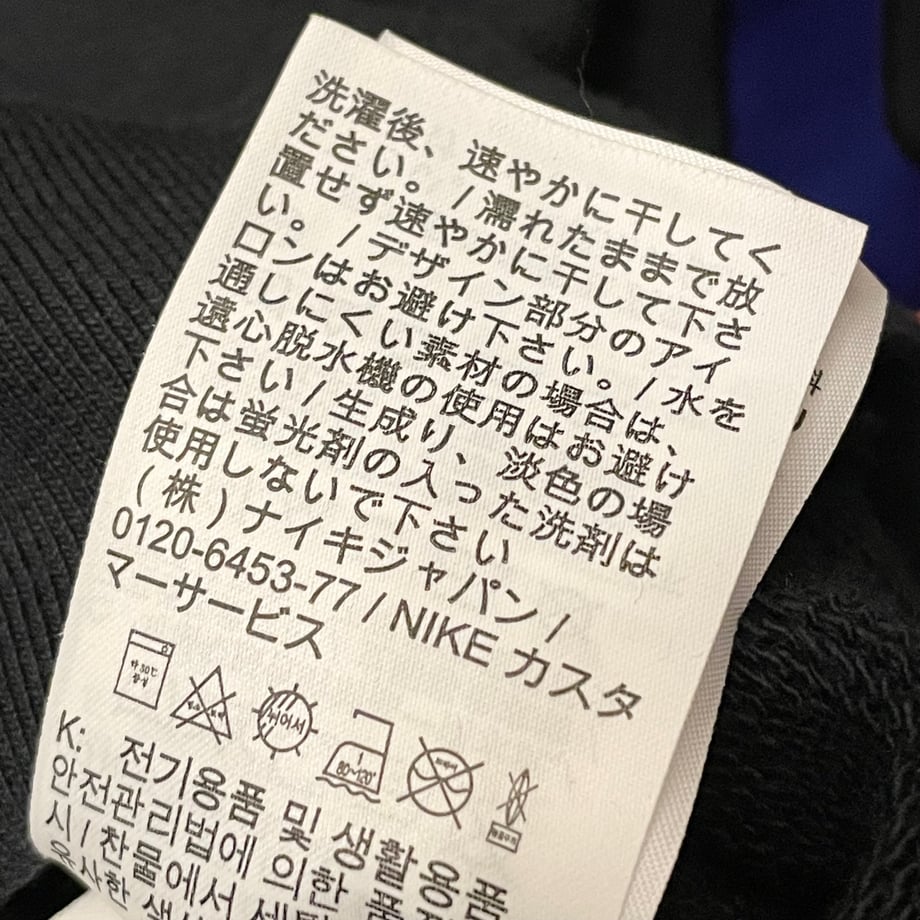 洗濯後、速やかに干してく
ださい。/濡れたままで放
置せず速やかに干して下さ
い。/デザイン部分のアイ
ロンはお避け下さい。/水を
通しにくい素材の場合は、
遠心脱水機の使用はお避け
下さい/生成り、淡色の場
合は蛍光剤の入った洗剤は
使用しないで下さい
(株)ナイキジャパン/
0120-6453-77/NIKE カスタ
マーサービス
약30℃
중성
뉘어서
80~120°
K: 전기용품 및 생활용품
안전관리법에 의한 품
시/찬물에서 세탁
유사한 색상